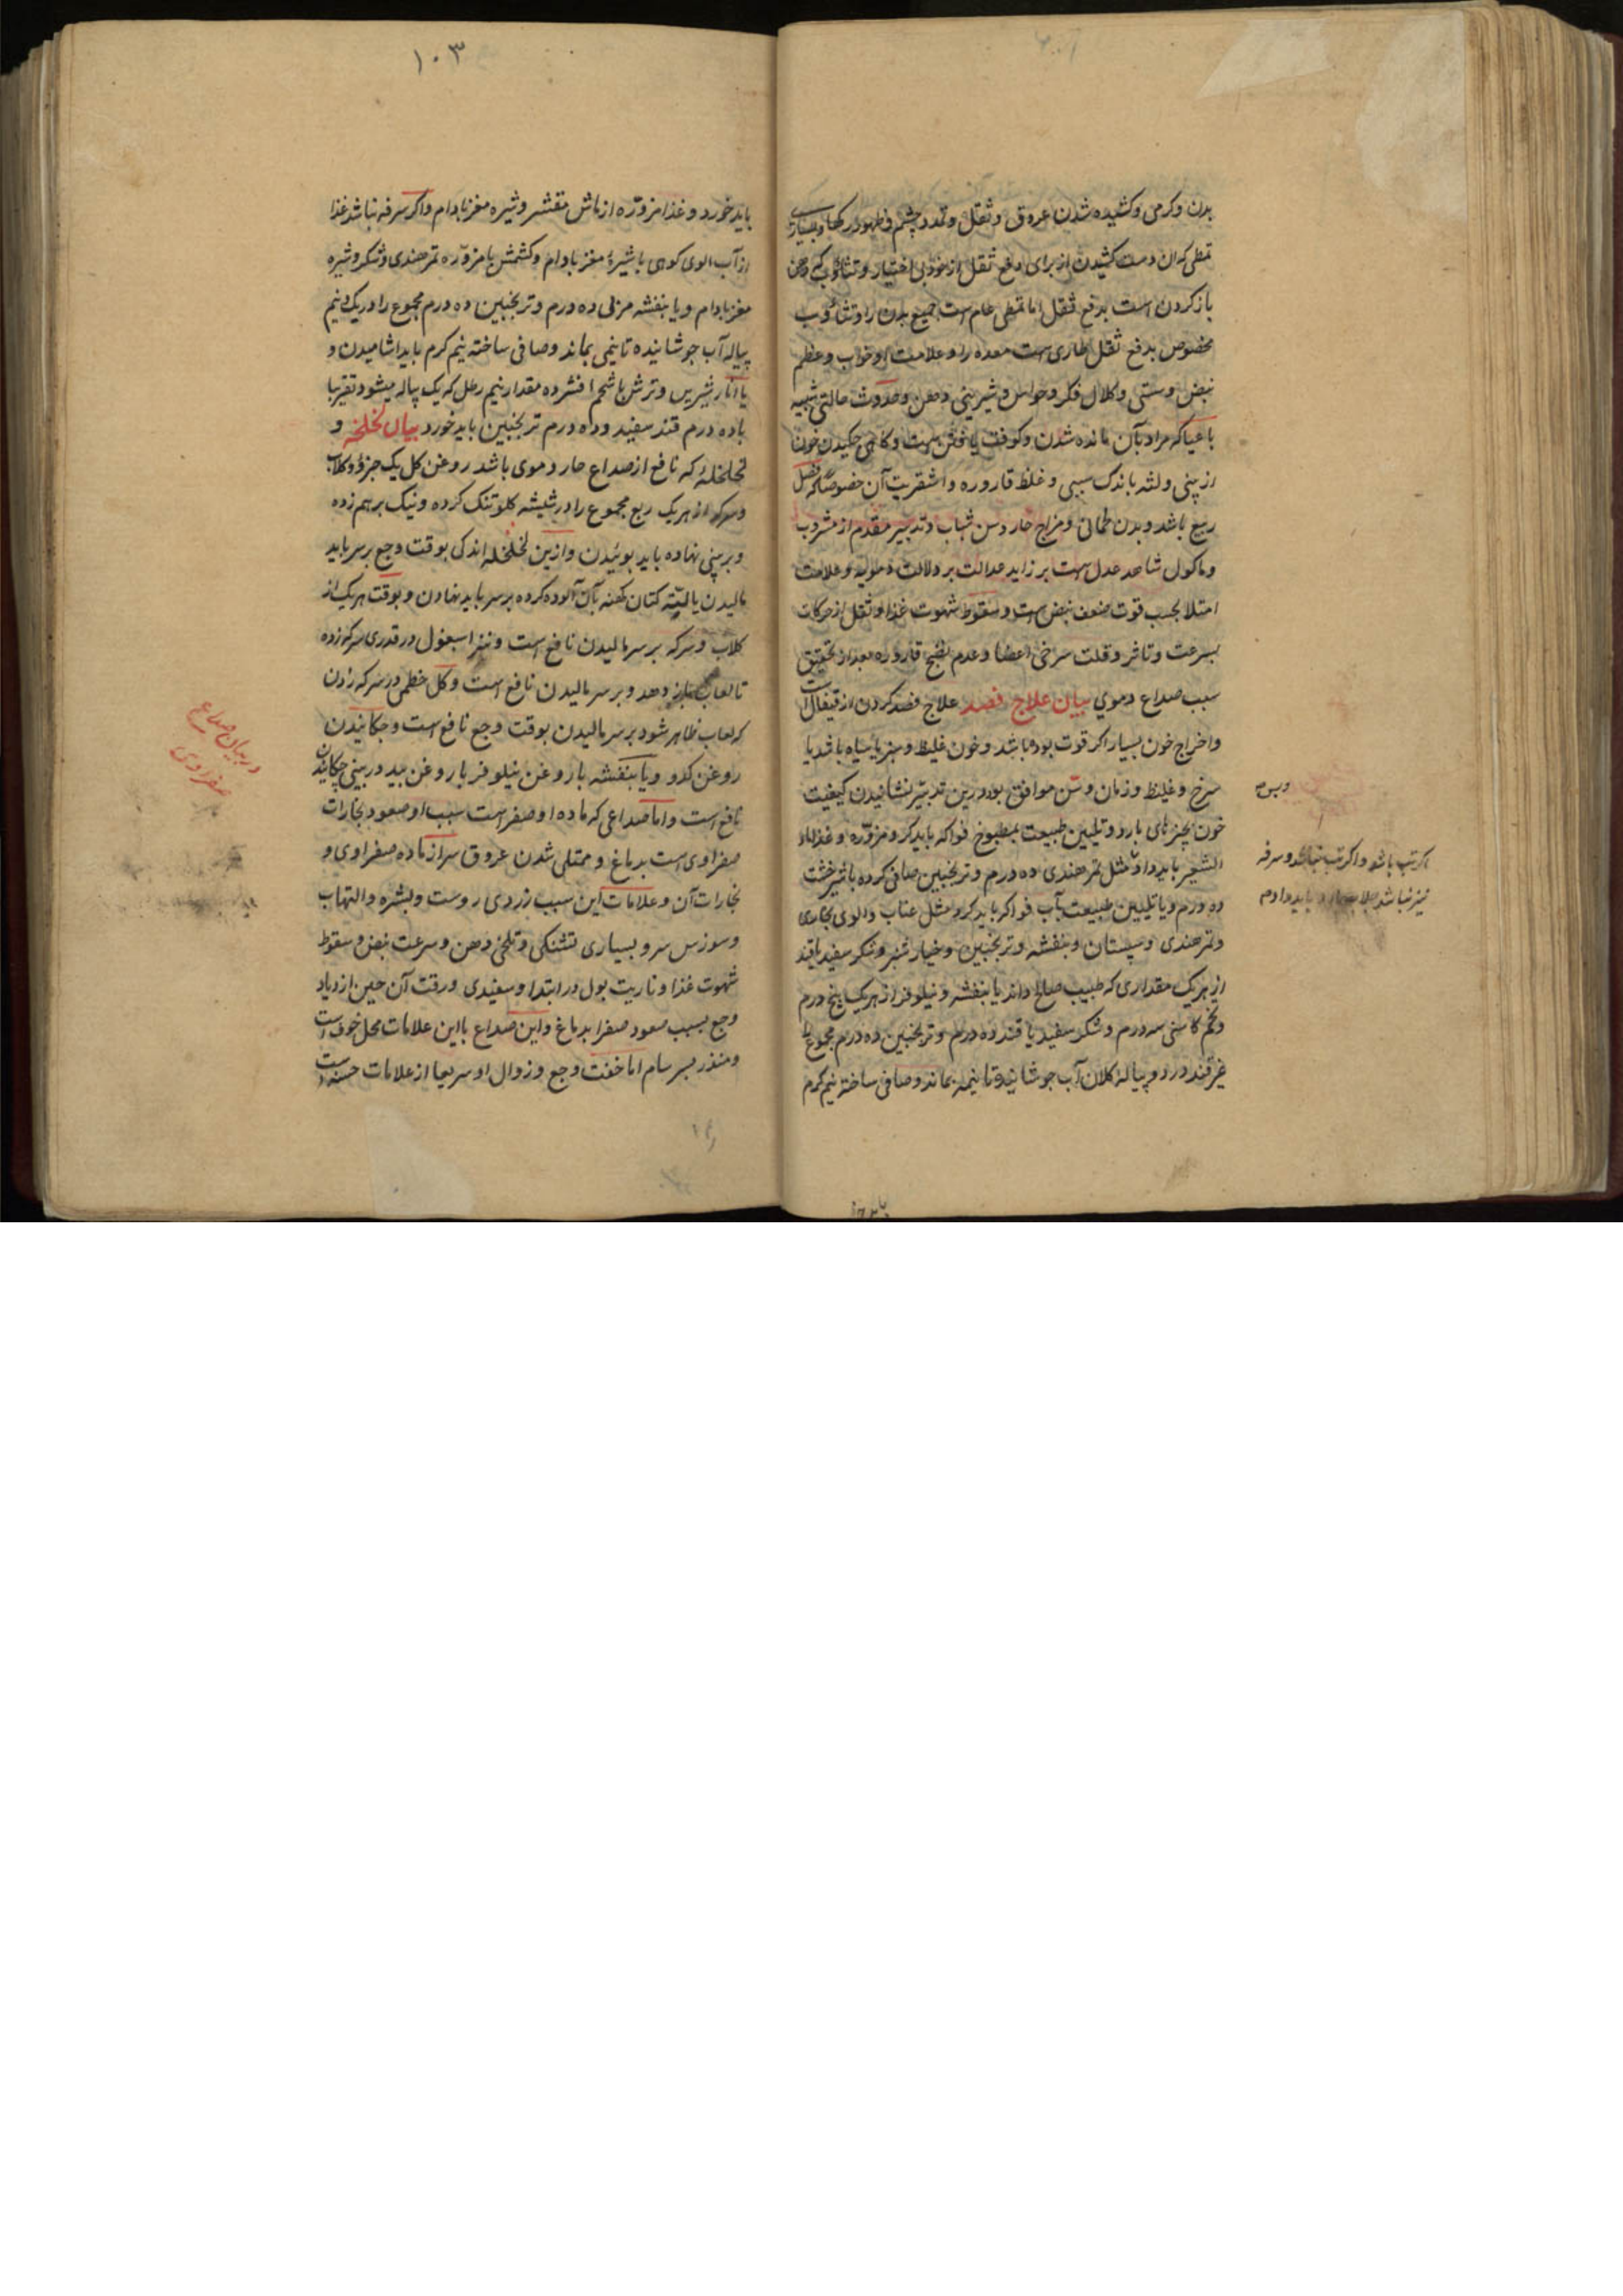 بدن و کرمی و کشیده شدن عروق و ثقل و تمدد چشم و ظهور رکها و بسیاری
تمطی که ان دست کشیدن از برای دفع ثقل از خود بی اختیار و تثاؤب که دهن
باز کردن است بدفع ثقل اما تمطی عام است جمیع بدن را و تثاؤب
مخصوص بدفع ثقل طاری است معده را و علامت او خواب و عظم
نبض و سستی و کلال فکر و حواس و شیرینی دهن و حدوث حالتی شبیه
باعیا که مراد بآن مانده شدن و کوفت یافتن است و کاهی چکیدن خون
از بینی و لثه باندک سببی و غلظ قاروره و اشقریت آن خصوصا که فصل
ربیع باشد و بدن لحمانی و مزاج حار و سن شباب و تدبیر مقدم از مشروب
و ماکول شاهد عدل است بر زاید عدالت بر دلالت دمویه و علامت
امتلا بحسب قوت ضعف نبض است و سقوط شهوت غذا و ثقل از حرکات
بسرعت و تاثر و قلت سرخی اعضا و عدم نضج قاروره بعد از تحقیق
سبب صداع دموی بیان علاج فصد علاج فصد کردن از قیفال است
و اخراج خون بسیار اکر قوت بوده باشد و خون غلیظ و سبز یا سیاه باشد یا
سرخ و غلیظ و زمان و سن موافق بود و زین تدبیر نشانیدن کیفیت
خون بچیزهای بارد و تلیین طبیعت بمطبوخ فواکه باید کرد و مزوره و غذا ماء
الشعیر باید داد مثل تمر هندی ده درم و ترنجبین صافی کرده با شیرخشت
ده درم و یا تلیین طبیعت بآب فواکه باید کرد مثل عناب و الوی بخاری
و تمر هندی و سپستان و بنفشه و ترنجبین و خیار شنبر و شکر سفید یا قند
از هر یک مقداری که طبیب صالح داند یا بنفشه و نیلوفر از هر یک پنج درم
و تخم کاسنی سه درم و شکر سفید یا قند ده درم و ترنجبین ده درم مجموع را
غیر قند در دو پیاله کلان آب جوشانیده تا نیمه بماند و صافی ساخته نیم کرم
اکر تب باشد و اکر تب نباشد و سرفه
نیز نباشد جلاب بارد باید داد دم
۱۰۳
باید خورد و غذا مزوره از ماش مقشر و شیره مغز بادام و اکر سرفه نباشد غذا
از آب الوی کوهی با شیرهٔ مغز بادام و کشمش یا مزوره تمر هندی و شکر و شیره
مغز بادام و یا بنفشه مربی ده درم و ترنجبین ده درم مجموع را در یک و نیم
پیاله آب جوشانیده تا نیمی بماند و صافی ساخته نیم کرم باید اشامیدن و
یا انار شیرین و ترش با شحم افشرده مقدار نیم رطل که یک پیاله میشود تقریبا
با ده درم قند سفید و ده درم ترنجبین باید خورد بیان لخلخه و
لخلخلهٔ که نافع از صداع حار دموی باشد روغن کل یک جزؤ و کلاب
و سرکه از هر یک ربع مجموع را در شیشه کلو تنک کرده و نیک بر هم زده
و بر بینی نهاده باید بوئیدن و از این لخلخله اندکی بوقت وجع بر سر باید
مالیدن یا لتّه کتان کهنه بآن آلوده کرده بر سر باید نهادن و بوقت هر یک از
کلاب و سرکه بر سر مالیدن نافع است و نیز اسبغول در قدری سرکه زده
تا لعاب باز دهد و بر سر مالیدن نافع است و کل خطمی در سرکه زدن
که لعاب ظاهر شود بر سر مالیدن بوقت وجع نافع است و چکانیدن
روغن کدو و یا بنفشه یا روغن نیلوفر یا روغن بید در بینی چکانیدن
نافع است و اما صداعی که ماده او صفر است سبب او صعود بخارات
صفراوی است بدماغ و ممتلی شدن عروق سر از ماده صفراوی و
بخارات آن و علامات این سبب زردی روست و بشره و التهاب
و سوزس سر و بسیاری تشنکی و تلخی دهن و سرعت نبض و سقوط
شهوت غذا و ناریت بول در ابتدا و سفیدی و رقت آن حین ازدیاد
وجع بسبب صعود صفرا بدماغ و این صداع با این علامات محل خوف است
و منذر بسرسام اما خفت وجع و زوال او سریعا از علامات حسنه است
در بیان صداع
صفراوی